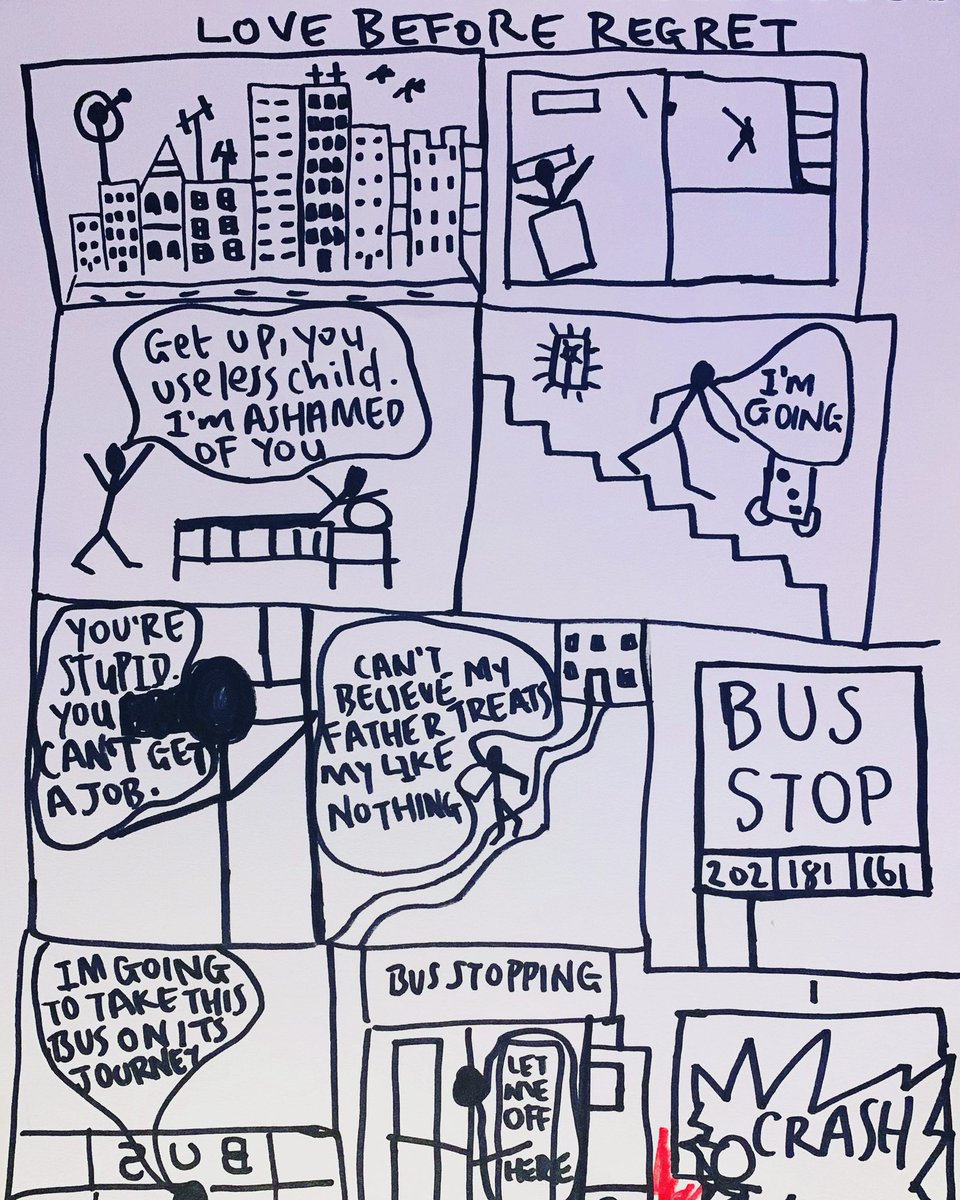 LOVE BEFORE REGRET
Get up, you
useless child.
I'm ASHAMED
OF YOU
I'M
GOING
YOU'RE
STUPID.
YOU
CAN'T GET
A JOB.
CAN'T
BELIEVE MY
FATHER TREATS
MY LIKE
NOTHING
BUS
STOP
202 181 161
IM GOING
TO TAKE THIS
BUS ON ITS
JOURNEY
BUS
BUS STOPPING
LET
ME
OFF
HERE
CRASH